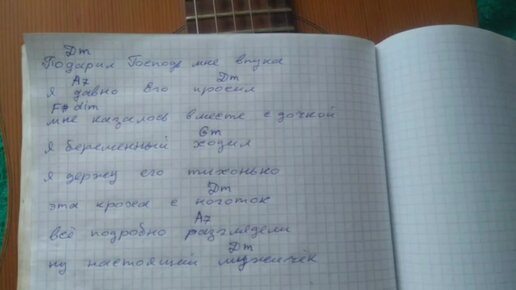 Dm
Подарил Господь мне внука
A7 Dm
я давно Его просил
F# dim
мне казалось вместе с дочкой
Gm
я беременный ходил
я держу его тихонько
Dm
эта кроха с ноготок
A7
всё подробно разглядели
Dm
ну настоящий мужичёк